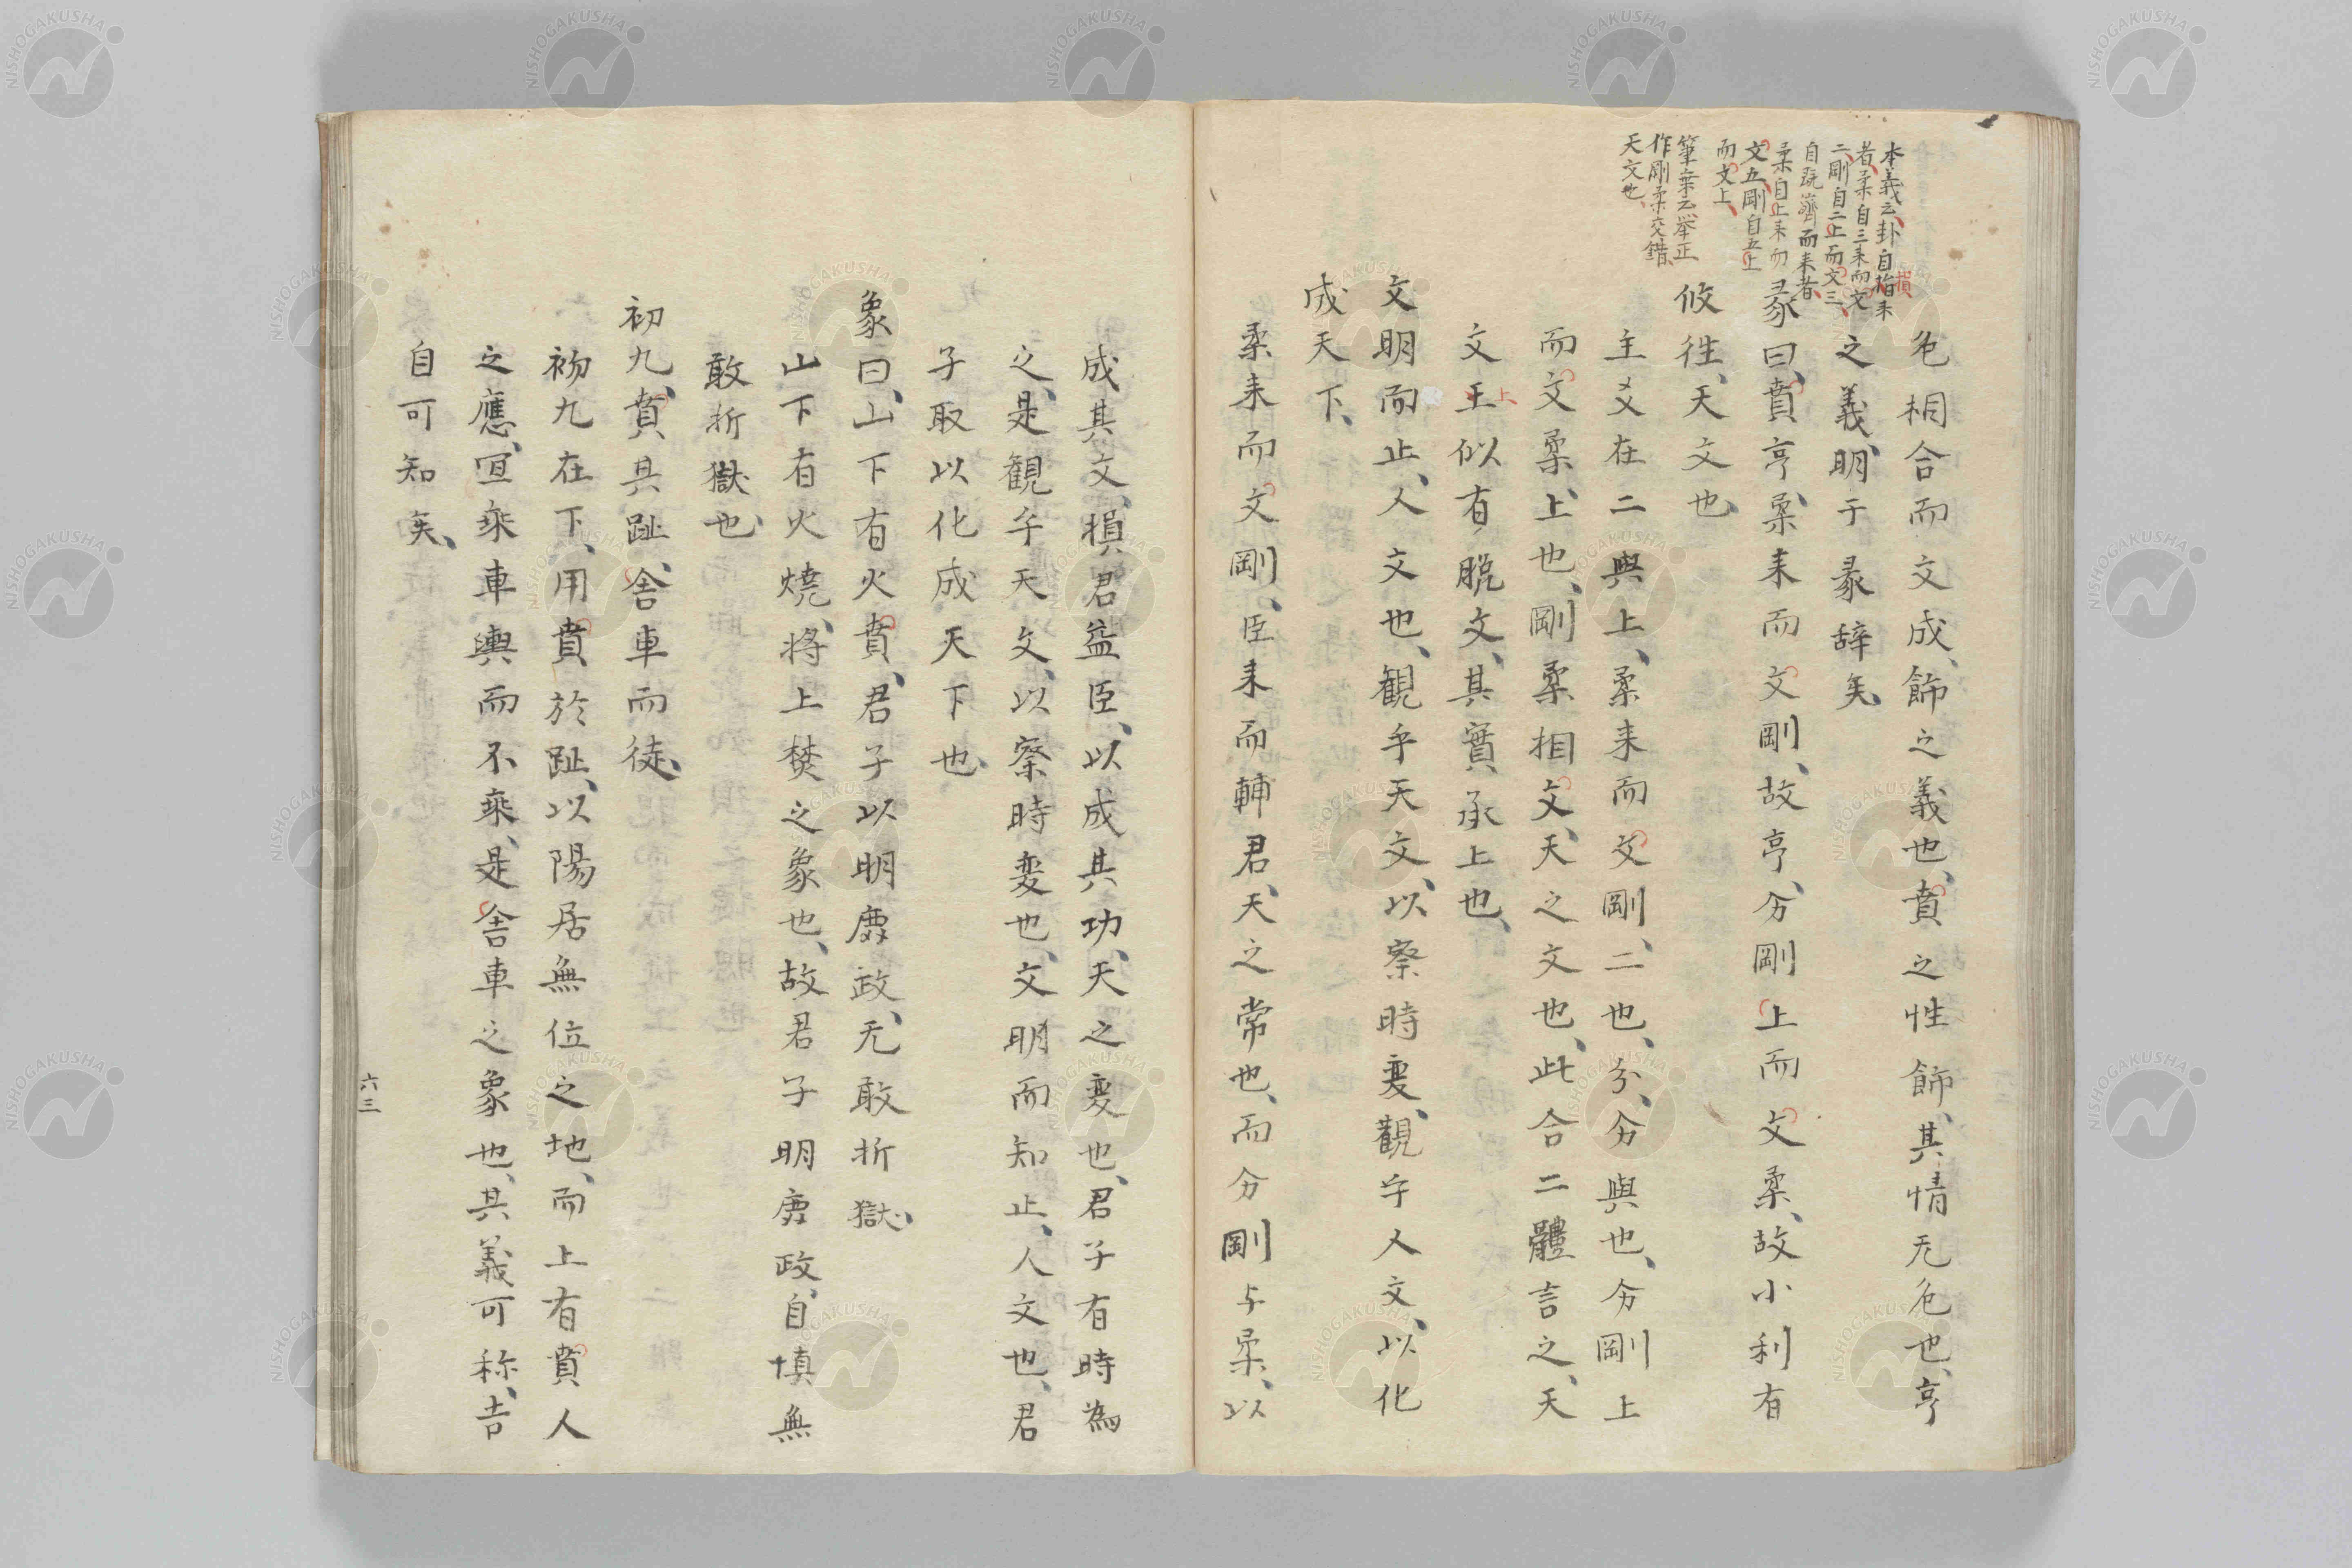 本義云、卦自損来
者、柔自三来而文
二、剛自二上而文三、
自既濟而来者、
柔自上来而
文五、剛自五上
而文上、
筆乗云、举正
作剛柔交錯、
天文也、
色相合而文成、飾之義也、賁之性飾、其情无色也、亨
之義、明于彖辞矣、
彖曰、賁亨、柔来而文剛、故亨、分剛上而文柔、故小利有
攸往、天文也、
主爻在二與上、柔来而文剛、二也、分、分與也、分剛上
而文柔、上也、剛柔相文、天之文也、此合二體言之、天
文上似有脱文、其實承上也、
文明而止、人文也、観乎天文、以察時変、観乎人文、以化
成天下、
柔来而文剛、臣来而輔君、天之常也、而分剛与柔、以
成其文、損君益臣、以成其功、天之変也、君子有時為
之、是観乎天文、以察時変也、文明而知止、人文也、君
子取以化成天下也、
象曰、山下有火賁、君子以明庶政、无敢折獄、
山下有火燒、将上焚之象也、故君子明庶政、自慎無
敢折獄也、
初九、賁其趾、舎車而徒、
初九在下、用賁於趾、以陽居無位之地、而上有賁人
之應、宜乗車輿而不乗、是舎車之象也、其義可称、吉
自可知矣、
六三